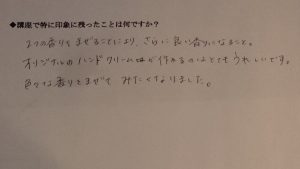 ◆講座で特に印象に残ったことは何ですか？
2つの香りをまぜることにより、さらに良い香りになること。
オリジナルのハンドクリームが作れるのはとてもうれしいです。
色々な香りをまぜて みたくなりました。